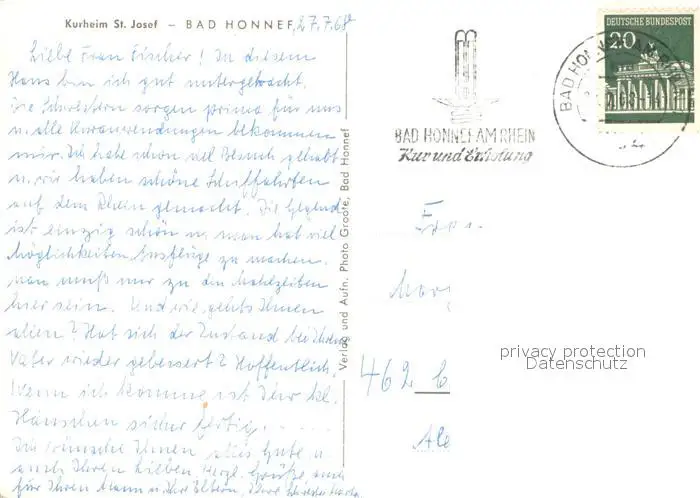 Kurheim St. Josef – BAD HONNEF, 27.7.68
Liebe Frau Fischer! In diesem
Haus bin ich gut untergebracht.
Die Schwestern sorgen prima für uns
u. alle Kuranwendungen bekommen
mir. Ich habe schon viel Besuch gehabt
u. wir haben schöne Schiffahrten
auf dem Rhein gemacht. Die Gegend
ist einzig schön u. man hat viel
Möglichkeiten Ausflüge zu machen.
Man muß nur zu den Mahlzeiten
hier sein. Und wie gehts Ihnen
allen? Hat sich der Zustand bei Ihrem
Vater wieder gebessert? Hoffentlich.
Wenn ich komme ist Ihr kl.
Häuschen sicher fertig.....
Ich wünsche Ihnen alles Gute u.
auch Ihren lieben. Herzl. Grüße auch
für Ihren Mann u. Ihre Eltern, Ihre Schwester
Verlag und Aufn. Photo Groote, Bad Honnef
BAD HONNEF AM RHEIN
Kur und Erholung
DEUTSCHE BUNDESPOST
20
BAD HONNEF
462
privacy protection
Datenschutz